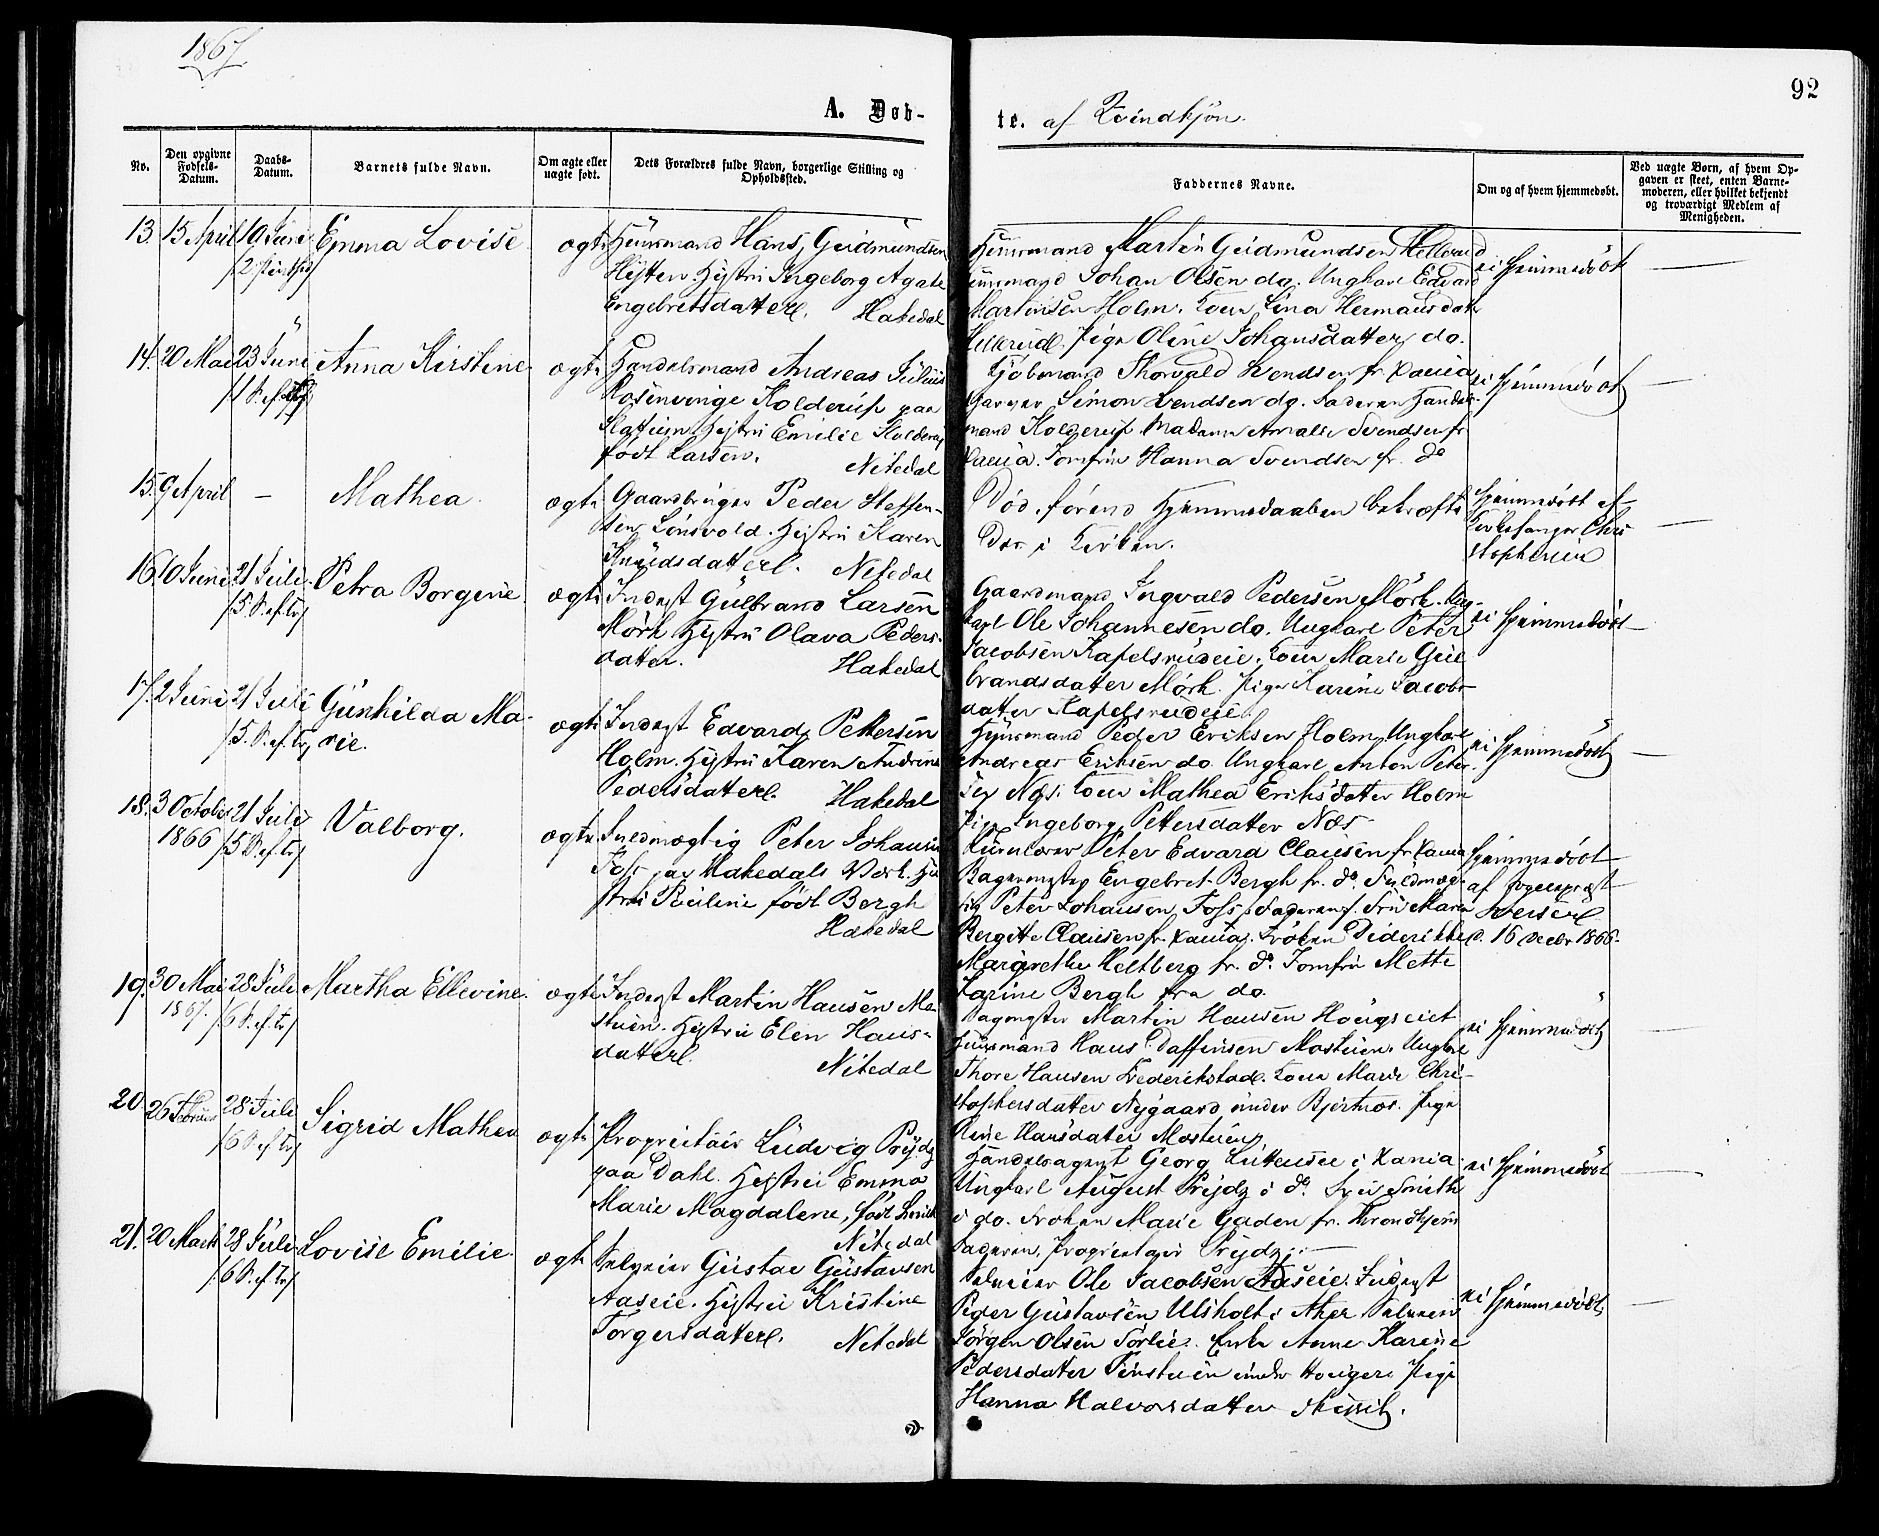 1867.
92
A. Døb-
te. af Qvindkjøn.
No.
Den opgivne Fødsels-Datum.
Daabs-Datum.
Barnets fulde Navn.
Om ægte eller uægte født.
Dets Forældres fulde Navn, borgerlige Stilling og Opholdssted.
Faddernes Navne.
Om og af hvem hjemmedøbt.
Ved uægte Børn, af hvem Op-
gaven er skeet, enten Barne-
moderen, eller hvilket bekjendt
og troværdigt Medlem af
Menigheden.
13. 15 April 10 Juni Emma Lovise ægte Huusmand Hans Gudmundsen
Hytten Hustru Ingeborg Agate
Engebretsdatter. Hakedal
Huusmand Martin Gudmundsen Hellerud
Huusmand Johan Olsen do. Ungkarl Edvard
Martinsen Holm. Kone Lina Hermansdatter
Hellerud. Pige Oline Johansdatter do.
ei hjemmedøbt —
14. 20 Mai 23 Juni Anna Kirstine ægte Handelsmand Andreas Julius
/1 S. ef. Tr/ Rosenvinge Kolderup paa
Slattum Hustru Emilie Kolderup
født Larsen. Nitedal
Kjøbmand Thorvald Svendsen fr. Xania
Garver Simon Svendsen do. Faderen Handels-
mand Kolderup. Madame Amalie Svendsen fr.
Xania. Jomfru Hanna Svendsen fr. do
ei hjemmedøbt —
15. 9 April — Mathea ægte Gaardbruger Peder Steffen-
sen Hustru Karen
Knudsdatter. Nitedal
Død, førend Hjemmedaaben bekræfte-
des i Kirken.
Hjemmedøbt af
Kirkesanger Chri-
stophersen —
16. 10 Juni 21 Juli Petra Borgine ægte Inderst Gulbrand Larsen
/5. S. ef. Tr/ Mørk Hustru Olava Peders-
datter. Hakedal
Gaardmand Ingvald Pedersen Mørk. Ung-
karl Ole Johannesen do. Ungkarl Peter
Jacobsen Kapelsrudeie. Kone Marie Gul-
brandsdatter Mørk. Pige Karine Jacobs-
datter Kapelsrudeie
ei hjemmedøbt —
17. 2 Juni 21 Juli Gunhilda Ma- ægte Inderst Edvard Pettersen
/5. S. ef. Tr/ rie. Holm. Hustru Karen Andrine
Pedersdatter. Hakedal
Huusmand Peder Eriksen Holm. Ungkarl
Andreas Eriksen do. Ungkarl Anton Peter-
sen Næs. Kone Mathea Eriksdatter Holm
Pige Ingeborg Pettersdatter Næs
ei hjemmedøbt —
18. 3 October 21 Juli Valborg. ægte Fuldmægtig Peter Johansen
1866 /5 S. ef. Tr/ Foss paa Hakedals Værk. Hu-
stru Pauline født Bergh
Hakedal
Peter Edvard Clausen fr. Xania
Bagermester Engebret Bergh fr. do. Fuldmæg-
tig Peter Johansen Foss, Faderen. Fru Maren
Bergitte Clausen fr. Xania. Frøken Diderikke
Margrethe Heltberg fr. do. Jomfru Mette
Karine Bergh fra do.
Hjemmedøbt
af Sogneprest
Iversen
d. 16 Decbr 1866.
19. 30 Mai 28 Juli Martha Ellevine. ægte Inderst Martin Hansen Mo-
1867. /6 S. ef. Tr/ stuen. Hustru Elen Hans-
datter. Nitedal
Martin Hansen
Huusmand Hans Daffinsen Mostuen. Ungkarl
Thore Hansen Frederikstad. Kone Marie Chri-
stophersdatter Nygaard under Bjertnæs. Pige
Oline Hansdatter Mostuen,
ei hjemmedøbt
20 26 Februar 28 Juli Sigrid Mathea ægte Proprietair Ludvig Prydz
/6 S. ef. Tr/ paa Dahl. Hustru Emma
Marie Magdalene, født Smith
Nitedal
Handelsagent Georg i Xania
Ungkarl August Prydz i do. Fru Smith
i do. Frøken Marie Gaden fr. Throndhjem
Faderen, Proprietair Prydz.
ei hjemmedøbt —
21. 20 Marts 28 Juli Lovise Emilie. ægte Selveier Gustav Gustavsen
/6 S. ef. Tr/ Aaseie. Hustru Kristine
Torgersdatter. Nitedal
Selveier Ole Jacobsen Aaseie. Inderst
Peder Gustavsen Ulsholt i Aker. Selveier
Jørgen Olsen Sørlie. Enke Anne Karine
Pedersdatter under Pige
Hanna Halvorsdatter
ei hjemmedøbt —